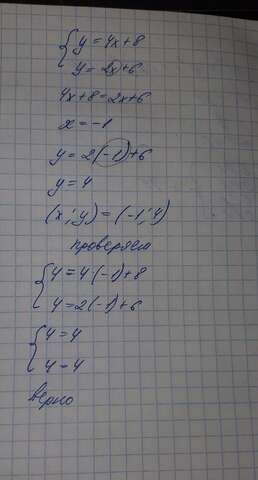 { y = 4x + 8
y = 2x + 6
4x + 8 = 2x + 6
x = -1
y = 2(-1) + 6
y = 4
(x ; y) = (-1 ; 4)
проверяем
{ 4 = 4·(-1) + 8
4 = 2(-1) + 6
{ 4 = 4
4 = 4
Верно